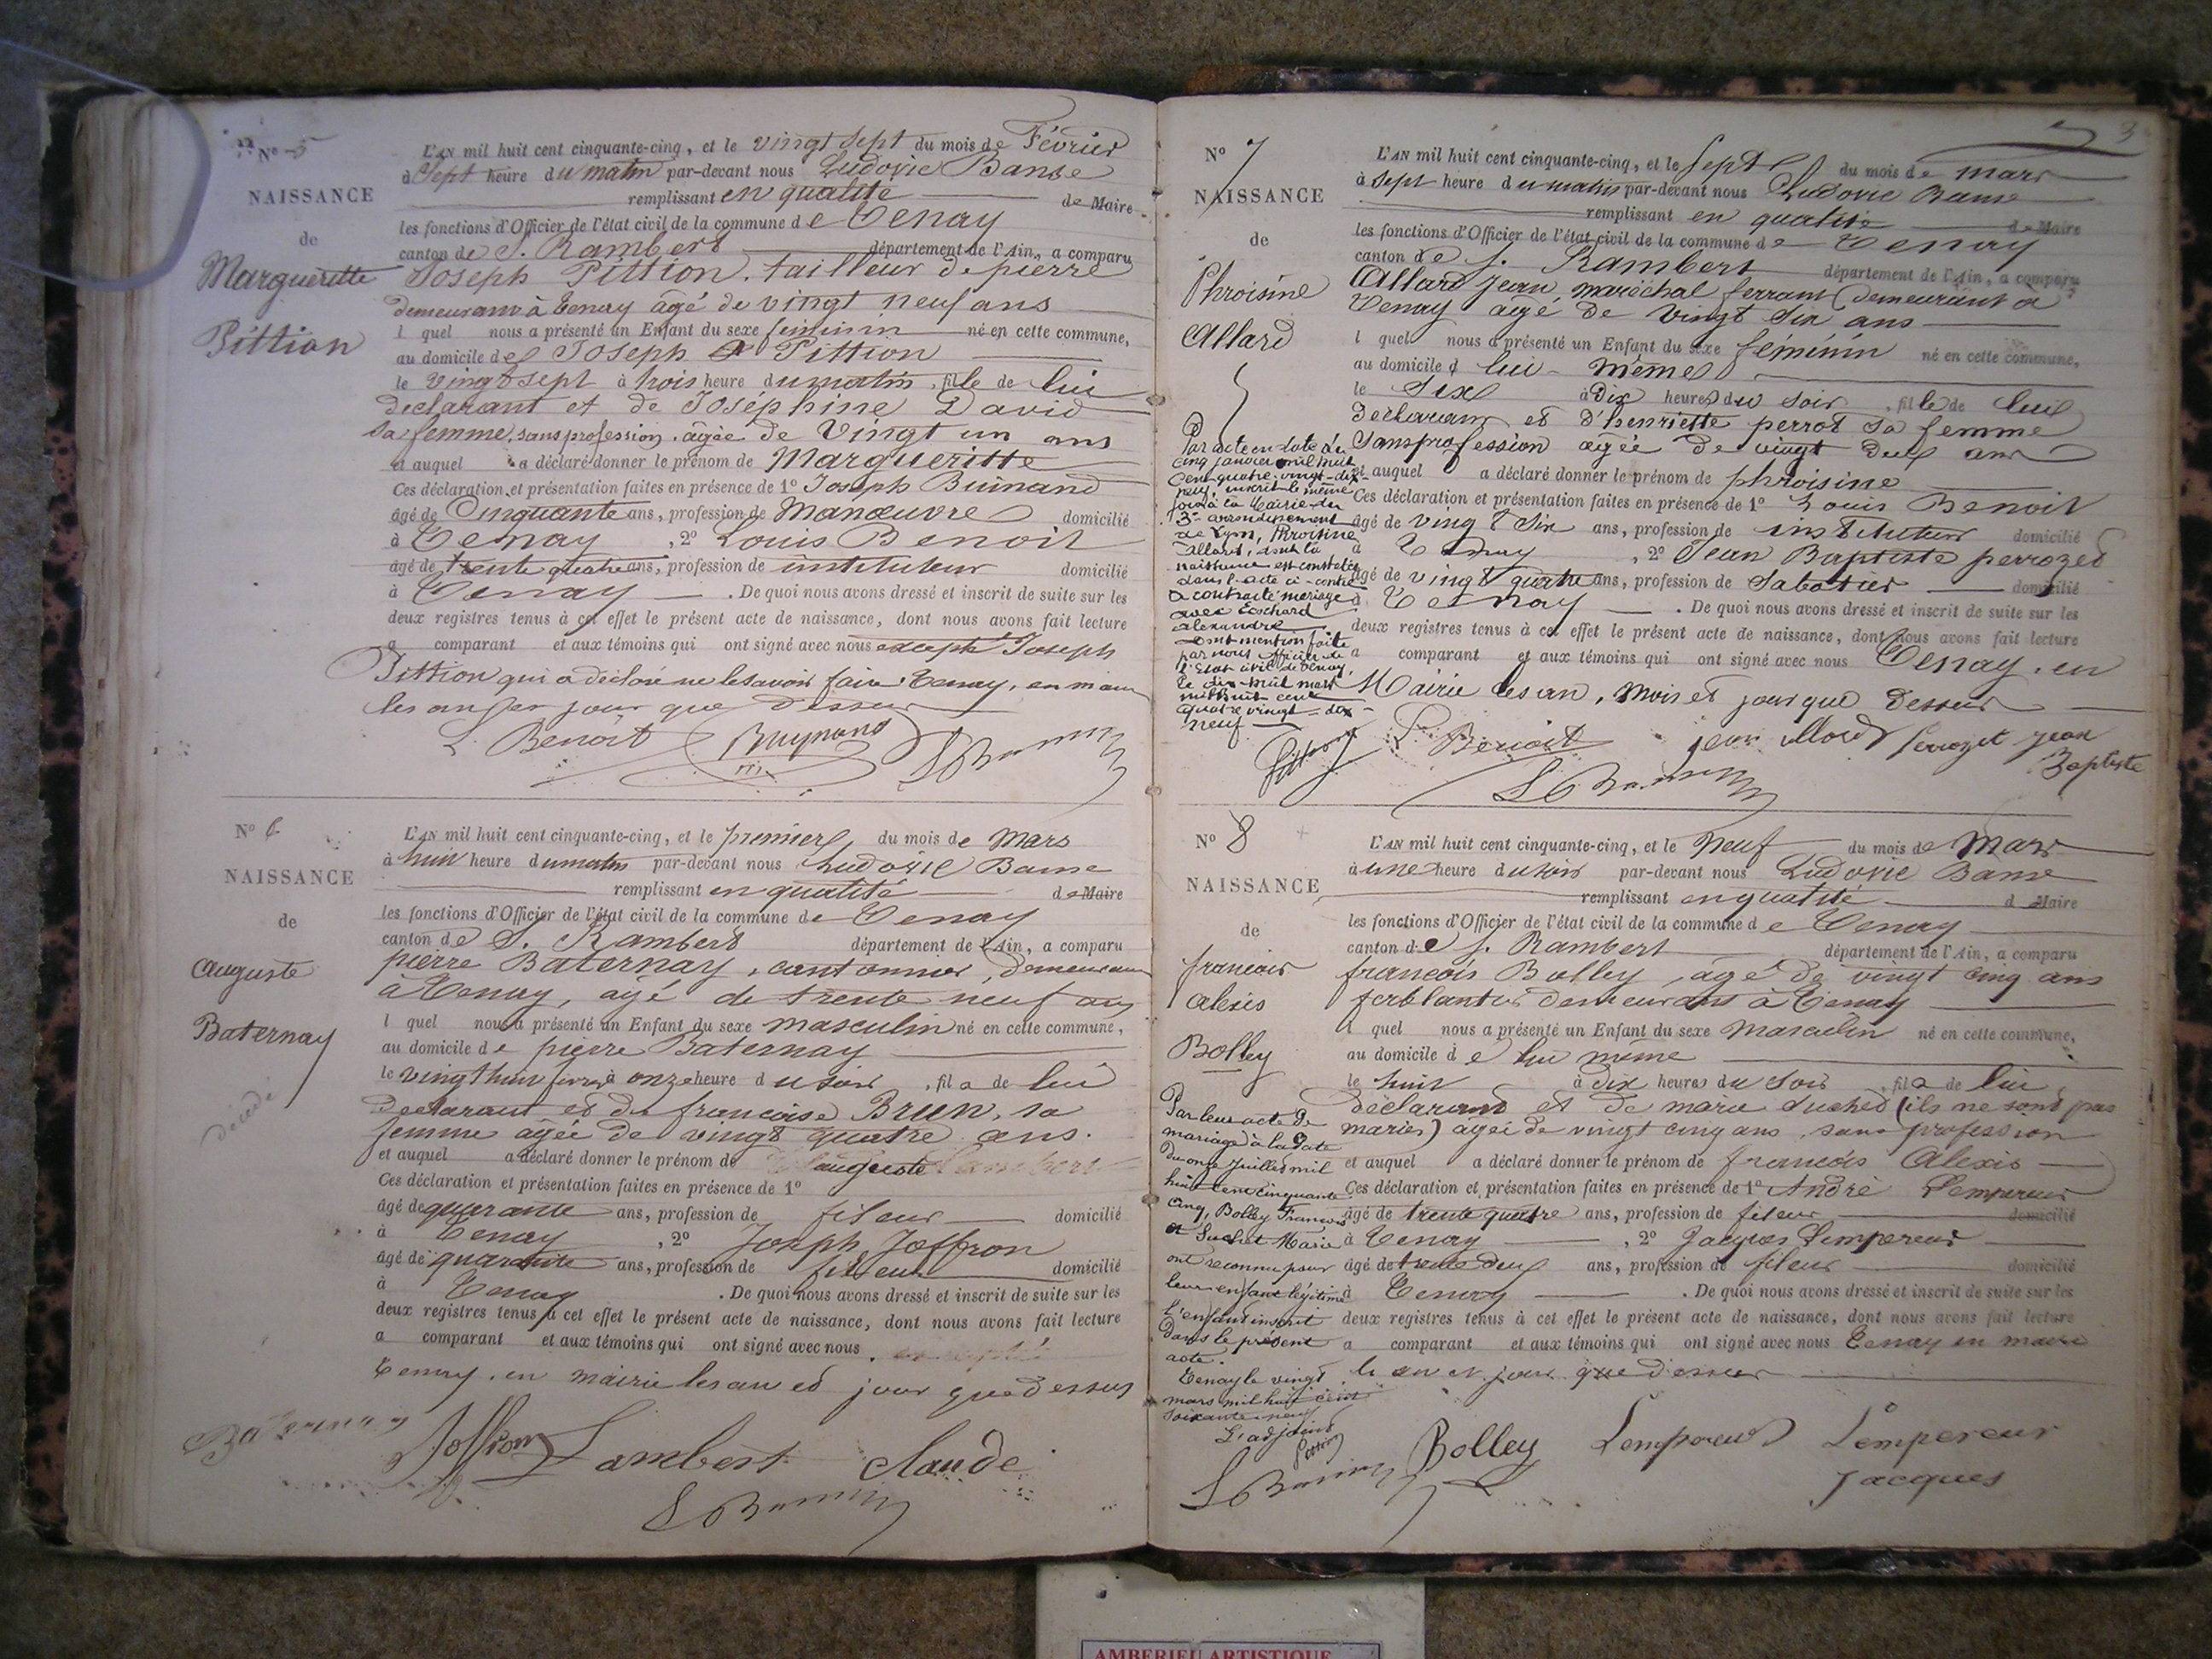 Nº 5
NAISSANCE
de
Marguerette
Pittion
L'AN mil huit cent cinquante-cinq, et le vingt sept du mois de Février
à Sept heure du matin par-devant nous Ludovic Banse
remplissant en qualité de Maire
les fonctions d'Officier de l'état civil de la commune de Tenay
canton de S. Rambert département de l'Ain, a comparu
Joseph Pittion, tailleur de pierre
demeurant à Tenay âgé de vingt neuf ans
l quel nous a présenté un Enfant du sexe feminin né en cette commune,
au domicile de Joseph Pittion
le vingt sept à trois heure du matin, fille de lui
declarant et de Joséphine David
sa femme, sans profession, âgée de vingt un ans
et auquel a déclaré donner le prénom de Margueritte
Ces déclaration et présentation faites en présence de 1º Joseph Buinand
âgé de Cinquante ans, profession de Manœuvre domicilié
à Tenay, 2º Louis Benoit
âgé de trente quatre ans, profession de instituteur domicilié
à Tenay. De quoi nous avons dressé et inscrit de suite sur les
deux registres tenus à cet effet le présent acte de naissance, dont nous avons fait lecture
a comparant et aux témoins qui ont signé avec nous excepté Joseph
Pittion qui a déclaré ne le savoir faire. Tenay, en mairie
les an et jour que dessus
L. Benoit Buynand
Nº 6
NAISSANCE
de
auguste
Baternay
décédé
L'AN mil huit cent cinquante-cinq, et le premier du mois de Mars
à huit heure du matin par-devant nous Ludovic Banse
remplissant en qualité de Maire
les fonctions d'Officier de l'état civil de la commune de Tenay
canton de S. Rambert département de l'Ain, a comparu
pierre Baternay, cantonnier, demeurant
à Tenay, âgé de trente neuf ans
l quel nous a présenté un Enfant du sexe masculin né en cette commune,
au domicile de pierre Baternay
le vingt huit à onze heure du soir, fils de lui
declarant et de francoise Brun, sa
femme agée de vingt quatre ans.
et auquel a déclaré donner le prénom de auguste
Ces déclaration et présentation faites en présence de 1º
âgé de quarante ans, profession de fileur domicilié
à Tenay, 2º Joseph Joffron
âgé de quarante ans, profession de fileur domicilié
à Tenay. De quoi nous avons dressé et inscrit de suite sur les
deux registres tenus à cet effet le présent acte de naissance, dont nous avons fait lecture
a comparant et aux témoins qui ont signé avec nous.
Tenay, en mairie les an et jour que dessus
Baternay Joffron Lambert claude
3
Nº 7
NAISSANCE
de
Phroisine
Allard
Par acte en date du
cinq janvier mil huit
cent quatre-vingt-dix-
neuf, inscrit le même
jour à la Mairie du
3e arrondissement
de Lyon, Phroisine
Allard, dont la
naissance est constatée
dans l'acte ci-contre
a contracté mariage
avec Cochard
alexandre
Dont mention faite
par nous officier de
l'Etat civil de Tenay,
le dix-huit mars
mil huit cent
quatre vingt-dix-
neuf
L'AN mil huit cent cinquante-cinq, et le Sept du mois de mars
à sept heure du matin par-devant nous Ludovic Banse
remplissant en qualité de Maire
les fonctions d'Officier de l'état civil de la commune de Tenay
canton de S. Rambert département de l'Ain, a comparu
Allard jean maréchal ferrant demeurant à
Tenay agé de vingt six ans
l quel nous a présenté un Enfant du sexe féminin né en cette commune,
au domicile d lui-même
le six à dix heures du soir, fille de lui
déclarant et d'henriette perrot sa femme
sans profession agée de vingt deux ans
et auquel a déclaré donner le prénom de phroisine
Ces déclaration et présentation faites en présence de 1º Louis Benoit
âgé de vingt six ans, profession de instituteur domicilié
à Tenay, 2º Jean Baptiste perrozet
âgé de vingt quatre ans, profession de Sabotier domicilié
à Tenay. De quoi nous avons dressé et inscrit de suite sur les
deux registres tenus à cet effet le présent acte de naissance, dont nous avons fait lecture
a comparant et aux témoins qui ont signé avec nous Tenay, en
Mairie les an, mois et jour que dessus
L. Benoit jean allard perrozet jean
Baptiste
Nº 8
NAISSANCE
de
francois
alexis
Bolley
Par leur acte de
mariage à la date
du onze juillet mil
huit cent cinquante
cinq, Bolley François
et Suchet Marie
ont reconnu pour
leur enfant légitime
l'enfant inscrit
dans le présent
acte.
Tenay le vingt
mars mil huit cent
soixante-neuf
L'adjoint
L'AN mil huit cent cinquante-cinq, et le Neuf du mois de Mars
à une heure du soir par-devant nous Ludovic Banse
remplissant en qualité d Maire
les fonctions d'Officier de l'état civil de la commune de Tenay
canton de S. Rambert département de l'Ain, a comparu
francois Bolley, agé de vingt cinq ans
ferblantier demeurant à Tenay
l quel nous a présenté un Enfant du sexe masculin né en cette commune,
au domicile de lui même
le huit à dix heures du soir, fils de lui
déclarant et de marie suchet (ils ne sont pas
mariés) agée de vingt cinq ans, sans profession
et auquel a déclaré donner le prénom de francois Alexis
Ces déclaration et présentation faites en présence de 1º André Lempereur
âgé de trente quatre ans, profession de fileur domicilié
à Tenay, 2º Jacques Lempereur
âgé de trente deux ans, profession de fileur domicilié
à Tenay. De quoi nous avons dressé et inscrit de suite sur les
deux registres tenus à cet effet le présent acte de naissance, dont nous avons fait lecture
a comparant et aux témoins qui ont signé avec nous Tenay en mairie
les an et jour que dessus
Bolley Lempereur Lempereur
Jacques
AMBERIEU ARTISTIQUE